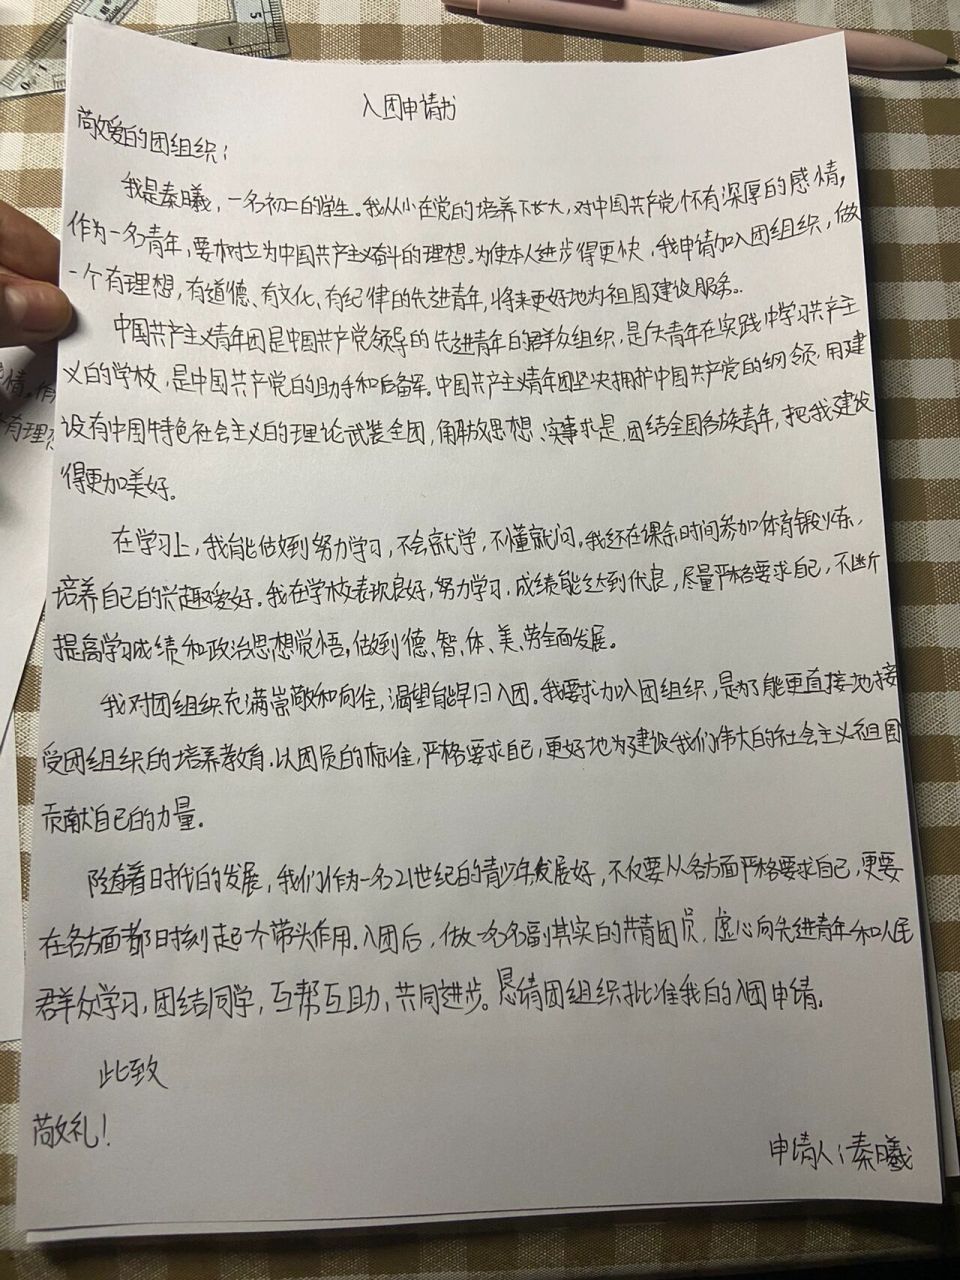 入团申请书
敬爱的团组织：
我是秦曦，一名初二的学生。我从小在党的培养下长大，对中国共产党怀有深厚的感情，
作为一名青年，要树立为中国共产主义奋斗的理想。为使本人进步得更快，我申请加入团组织，做
一个有理想，有道德、有文化、有纪律的先进青年，将来更好地为祖国建设服务。
中国共产主义青年团是中国共产党领导的先进青年的群众组织，是广大青年在实践中学习共产主
义的学校，是中国共产党的助手和后备军。中国共产主义青年团坚决拥护中国共产党的纲领，用建
设有中国特色社会主义的理论武装全团，解放思想、实事求是，团结全国各族青年，把我建设
得更加美好。
在学习上，我能做到努力学习，不会就学，不懂就问。我还在课余时间参加体育锻炼，
培养自己的兴趣爱好。我在学校表现良好，努力学习，成绩能达到优良，尽量严格要求自己，不断
提高学习成绩和政治思想觉悟，做到德、智、体、美、劳全面发展。
我对团组织充满崇敬和向往，渴望能早日入团。我要求加入团组织，是为了能更直接地接
受团组织的培养教育，以团员的标准，严格要求自己，更好地为了建设我们伟大的社会主义祖国
贡献自己的力量。
随着时代的发展，我们作为一名21世纪的青少年发展好，不仅要从各方面严格要求自己，更要
在各方面都时刻起个带头作用。入团后，做一名名副其实的共青团员，虚心向先进青年和人民
群众学习，团结同学，互帮互助，共同进步。恳请团组织批准我的入团申请。
此致
敬礼！
申请人：秦曦